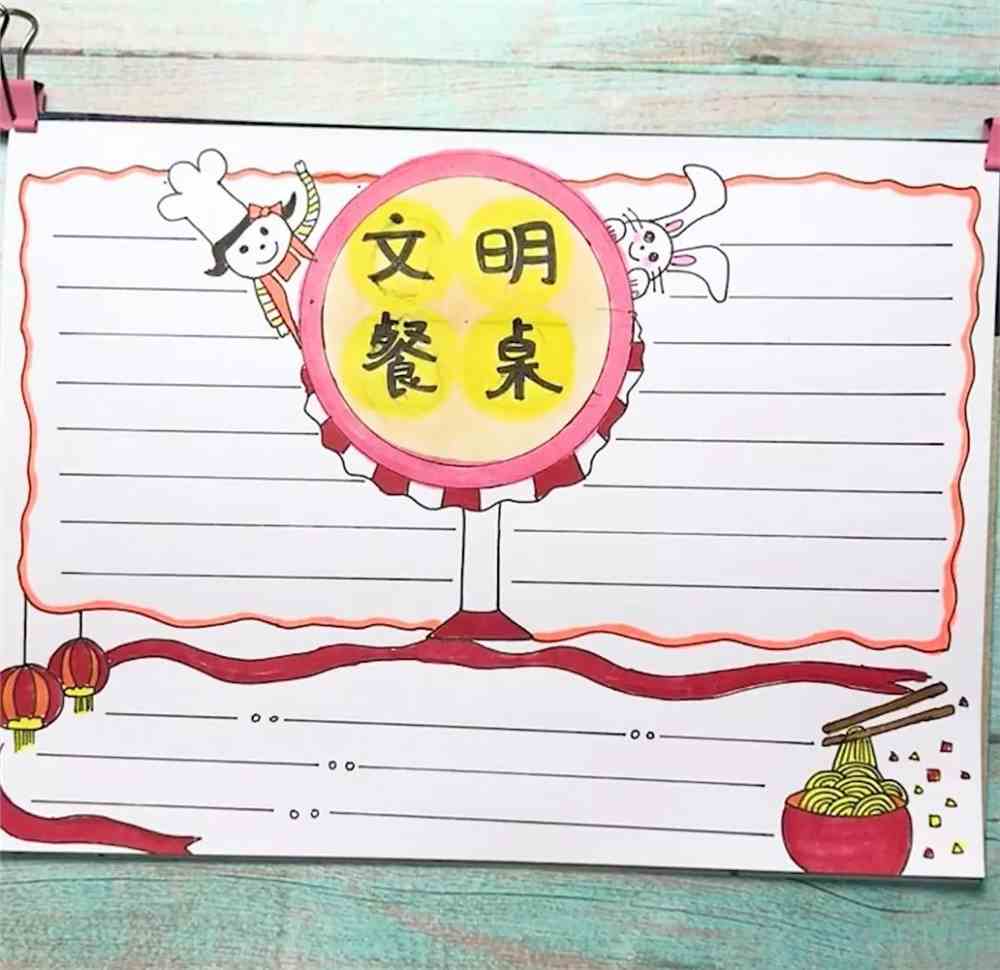 文明
餐桌